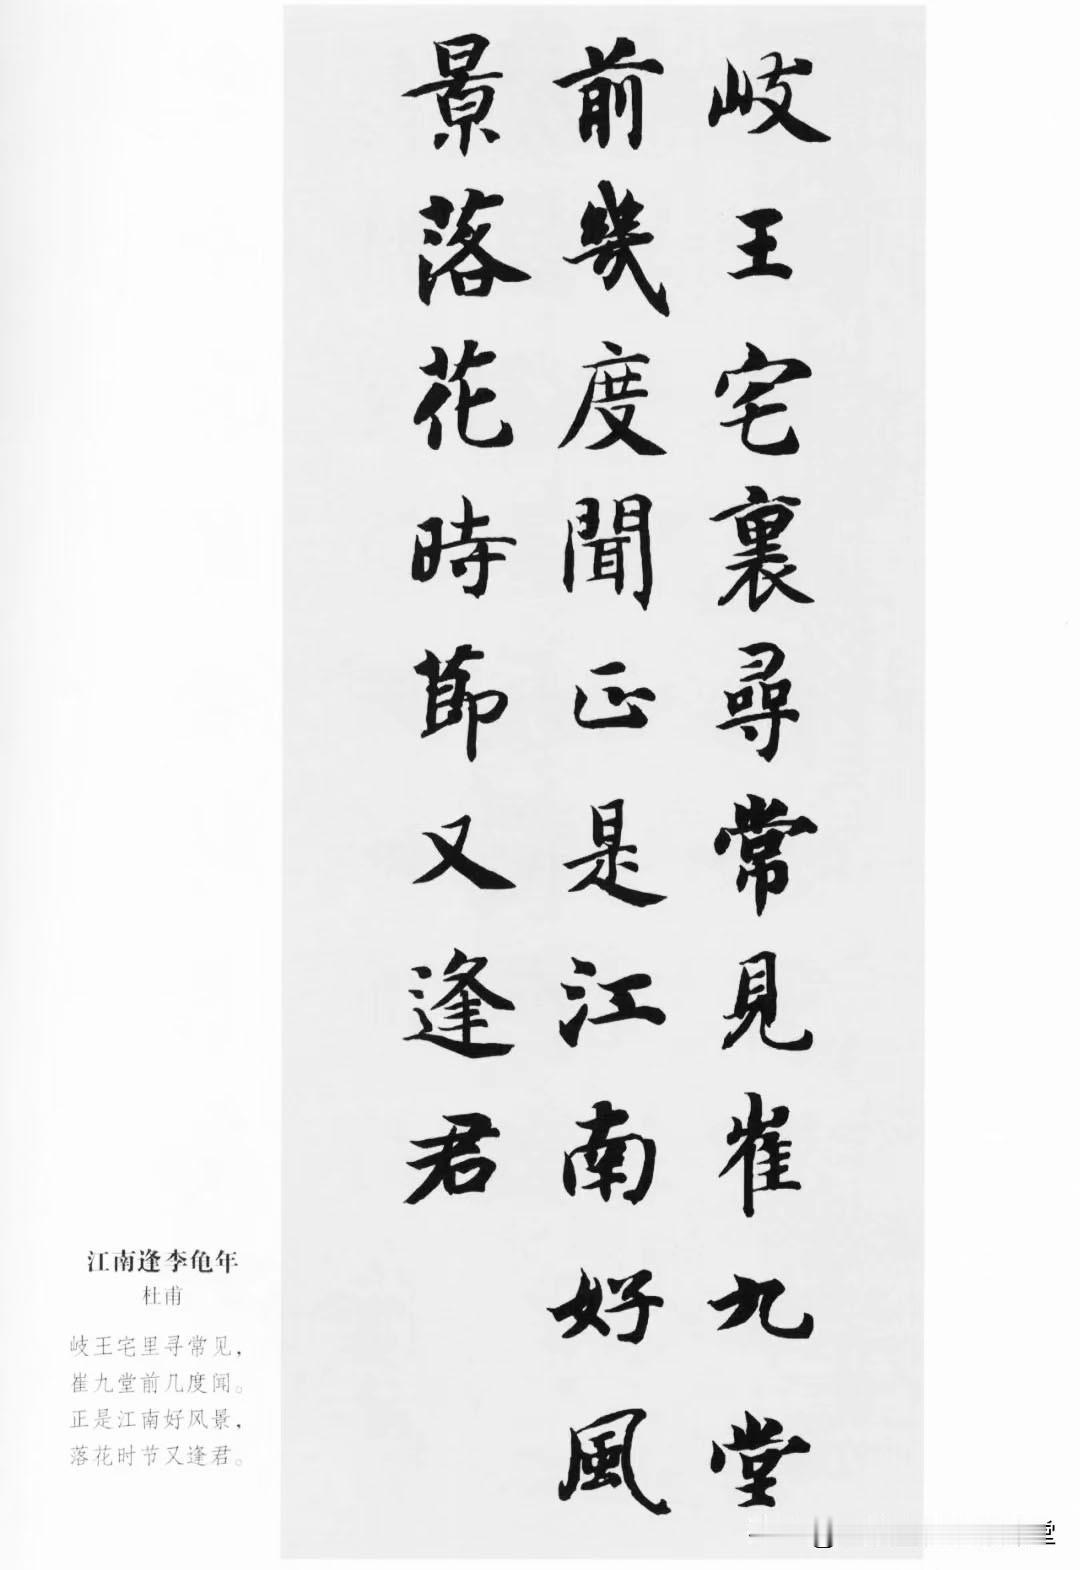 岐王宅裏尋常見崔九堂
前幾度聞正是江南好風
景落花時節又逢君
江南逢李龟年
杜甫
岐王宅里寻常见，
崔九堂前几度闻。
正是江南好风景，
落花时节又逢君。